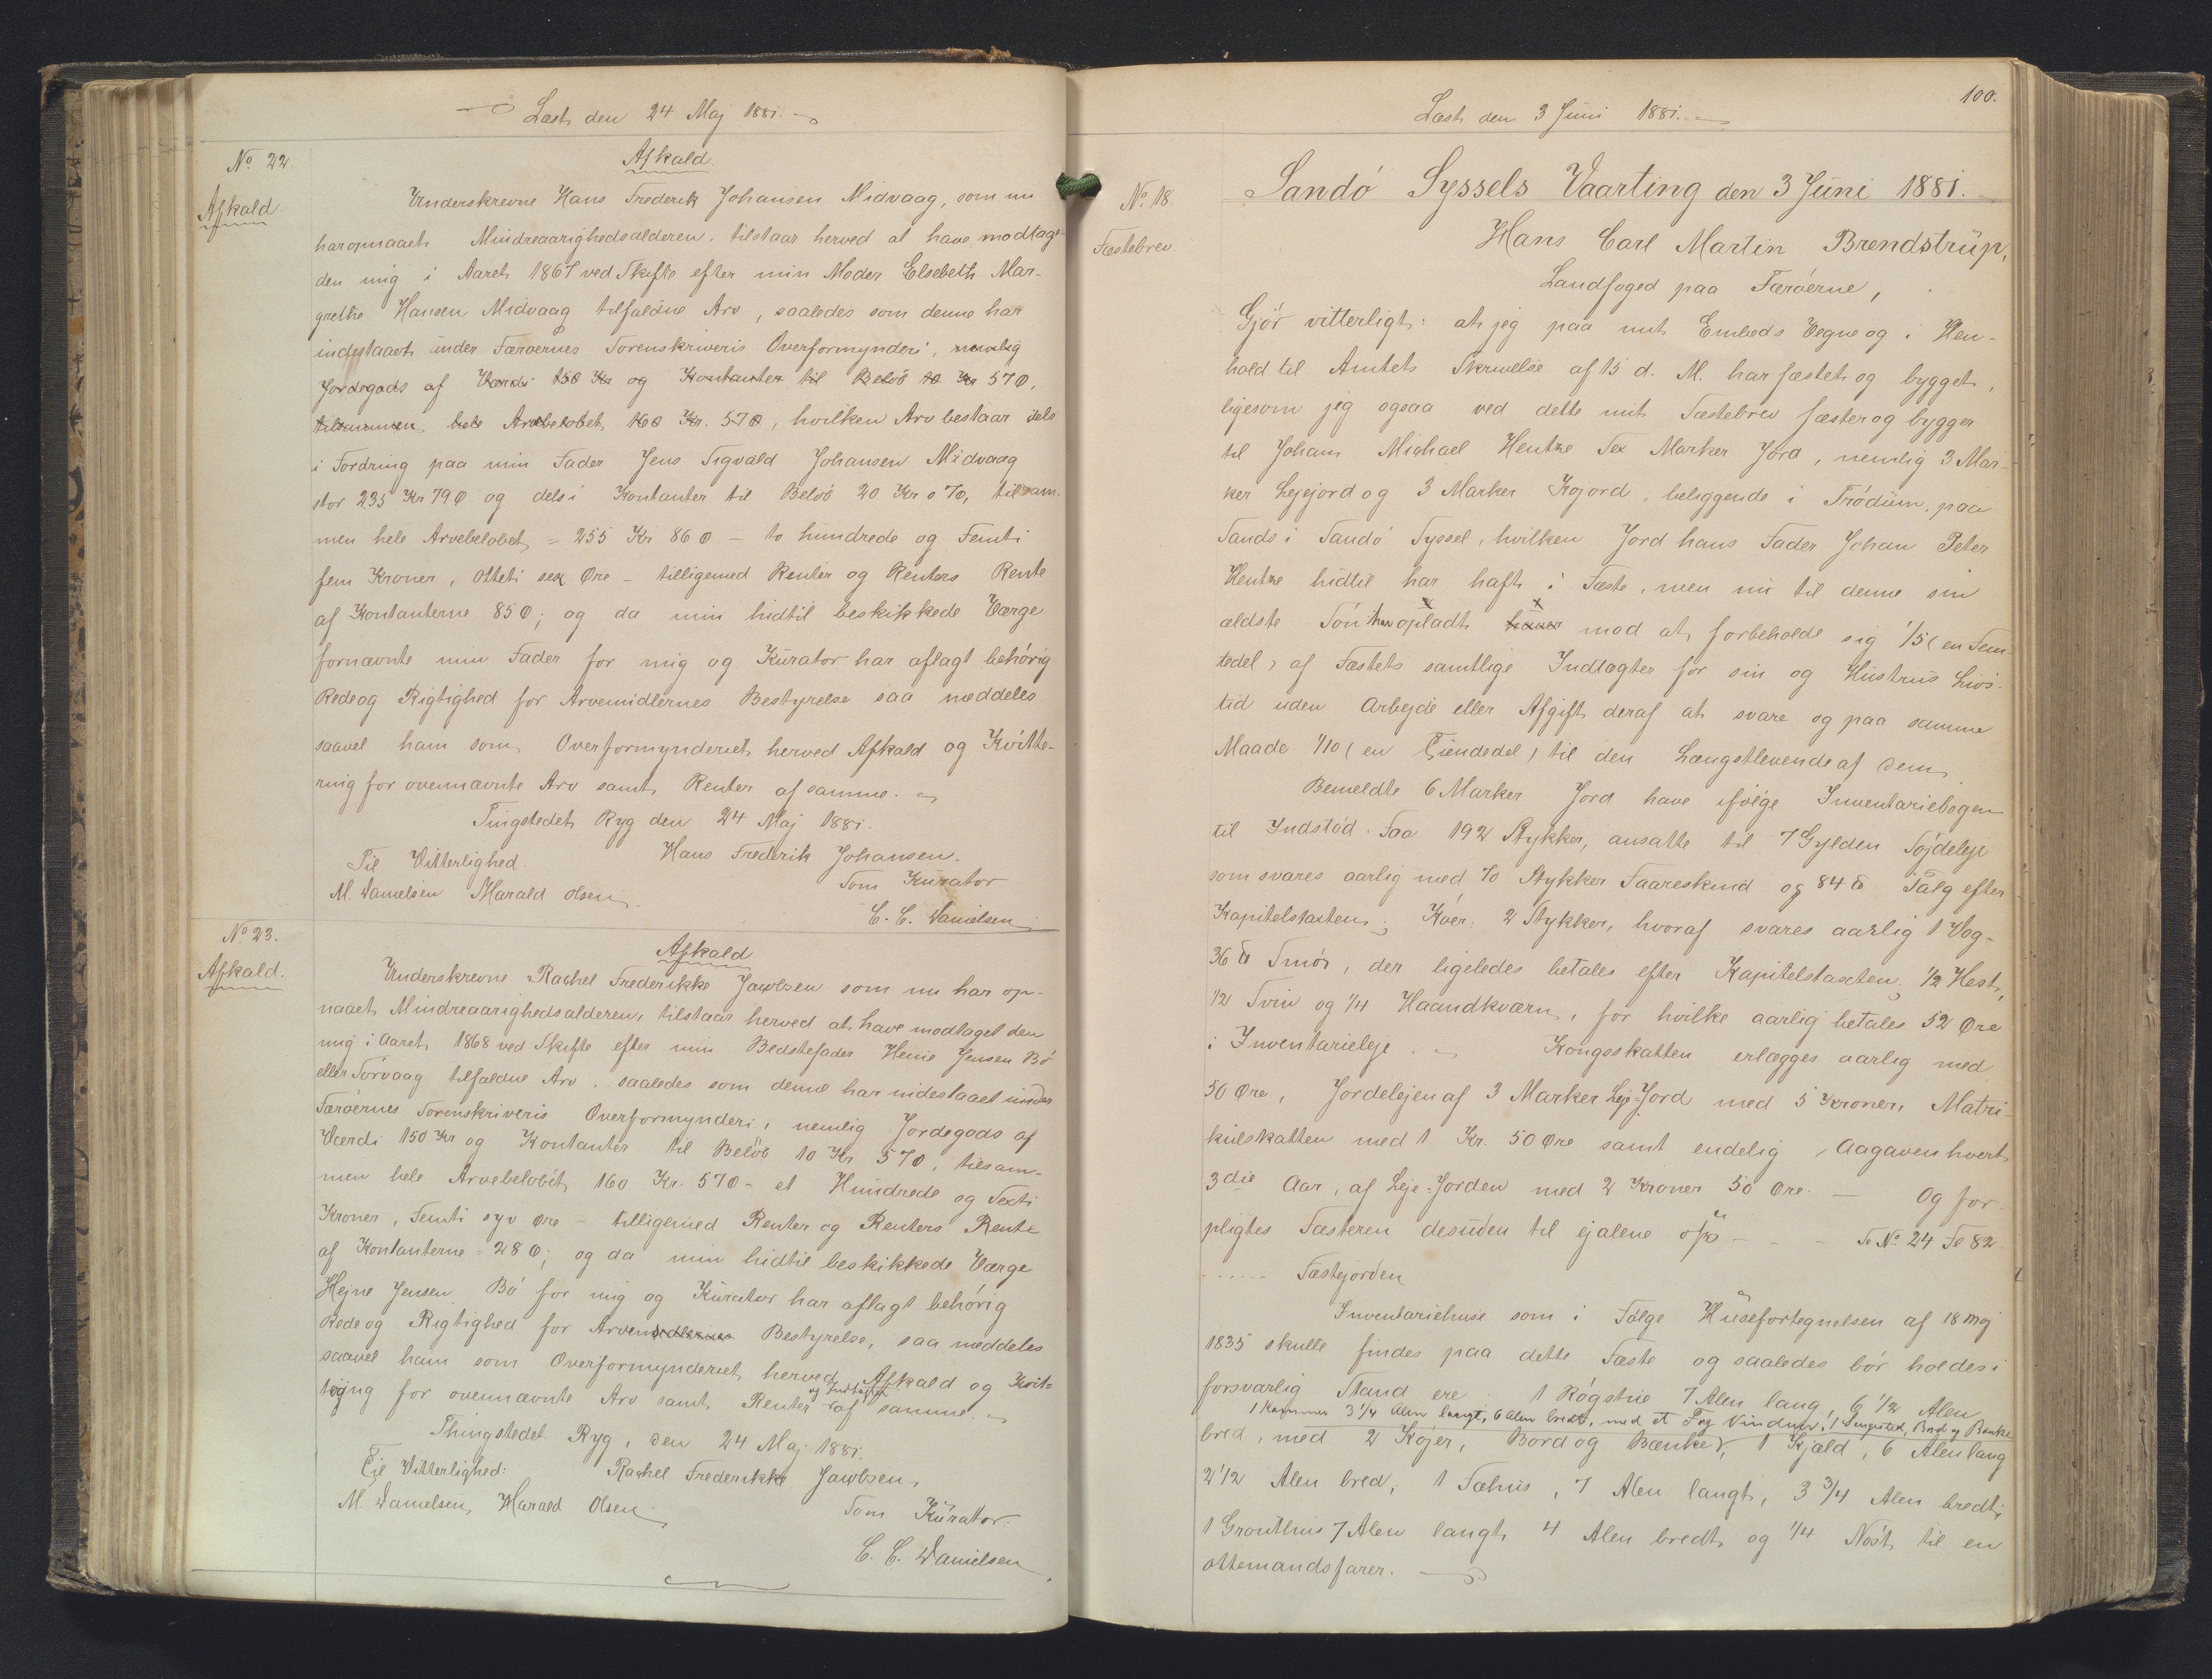 Læst den 24 Maj 1881.
No. 22.
Afkald
Afkald
Underskrevne Hans Frederik Johansen Midvaag, som nu
har opnaaet Mindreaarighedsalderen, tilstaar herved at have modtaget
den mig i Aaret 1867 ved Skifte efter min Moder Elsebeth Mar-
grethe Hansen Midvaag tilfaldne Arv, saaledes som denne har
indestaaet under Færøernes Sorenskriveris Overformynderi, nemlig
Jordegods af Værdi 150 Kr og Kontanter til Beløb 10 Kr 57 Ø,
tilsammen hele Arvebeløbet 160 Kr. 57 Ø, hvilken Arv bestaar dels
i Fordring paa min Fader Jens Sigvald Johansen Midvaag
stor 235 Kr 79 Ø og dels i Kontanter til Beløb 20 Kr 07 Ø, tilsam-
men hele Arvebeløbet = 255 Kr 86 Ø - to hundrede og Femti
fem Kroner, Otteti sex Øre - tilligemed Renter og Renters Rente
af Kontanterne 85 Ø; og da min hidtil beskikkede Værge
fornævnte min Fader for mig og Kurator har aflagt behørig
Rede og Rigtighed for Arvemidlernes Bestyrelse saa meddeles
saavel ham som Overformynderiet herved Afkald og Kvitte-
ring for ovennævnte Arv samt Renter af samme.
Tingstedet Ryg den 24 Maj 1881.
Til Vitterlighed. Hans Frederik Johansen.
M. Danielsen Harald Olsen. Som Kurator
C. C. Danielsen
No. 23.
Afkald.
Afkald
Underskrevne Rachel Frederikke Jacobsen som nu har op-
naaet Mindreaarighedsalderen, tilstaar herved at have modtaget den
mig i Aaret 1868 ved Skifte efter min Bedstefader Heine Jensen Bø
eller Sørvaag tilfaldne Arv, saaledes som denne har indestaaet under
Færøernes Sorenskriveris Overformynderi, nemlig Jordegods af
Værdi 150 Kr og Kontanter til Beløb 10 Kr 57 Ø, tilsam-
men hele Arvebeløbet 160 Kr. 57 Ø - et Hundrede og Sexti
Kroner, Femti syv Øre - tilligemed Renter og Renters Rente
af Kontanterne = 28 Ø; og da min hidtil beskikkede Værge
Hejne Jensen Bø for mig og Kurator har aflagt behørig
Rede og Rigtighed for Arvemidlernes Bestyrelse, saa meddeles
saavel ham som Overformynderiet herved Afkald og Kvit-
tering for ovennævnte Arv samt Renter og Indtægter af samme.
Thingstedet Ryg, den 24 Maj 1881.
Til Vitterlighed: Rachel Frederikke Jacobsen,
M. Danielsen, Harald Olsen. Som Kurator.
C. C. Danielsen
100.
Læst den 3 Juni 1881.
No. 18.
Fæstebrev
Sandø Syssels Vaarting den 3 Juni 1881.
Hans Carl Martin Brendstrup,
Landfoged paa Færøerne,
Gjør vitterligt: at jeg paa mit Embeds Vegne og i Hen-
hold til Amtets Skrivelse af 15 d. M. har fæstet og bygget,
ligesom jeg ogsaa ved dette mit Fæstebrev fæster og bygger
til Johan Michael Hentze Sex Marker Jord, nemlig 3 Mar-
ker Lejejord og 3 Marker Kojord, beliggende i Trødum, paa
Sands i Sandø Syssel, hvilken Jord hans Fader Johan Peter
Hentze hidtil har haft i Fæste, men nu til denne sin
ældste Søn har opladt haver mod at forbeholde sig 1/5 (en Fem-
tedel) af Fæstets samtlige Indtægter for sin og Hustrus Livs-
tid uden Arbejde eller Afgift deraf at svare og paa samme
Maade 1/10 (en Tiendedel) til den Længstlevende af dem
Bemeldte 6 Marker Jord have ifølge Inventariebogen
til Indstød: Faa 192 Stykker, ansatte til 7 Gylden Søjdeleje
som svares aarlig med 70 Stykker Faareskind og 84 ℔ Talg efter
Kapitelstaxten; Køer: 2 Stykker, hvoraf svares aarlig 1 Vog-
36 ℔ Smør, der ligeledes betales efter Kapitelstaxten; 1/2 Hest,
1/2 Svin og 1/4 Haandkværn, for hvilke aarlig betales 52 Øre
i Inventarieleje. Kongsskatten erlægges aarlig med
50 Øre, Jordelejen af 3 Marker Leje-Jord med 5 Kroner, Matri-
kulskatten med 1 Kr. 50 Øre samt endelig Aagaven hvert
3die Aar, af Leje-Jorden med 2 Kroner 50 Øre. — Og for-
pligtes Fæsteren desuden til ejalene - - - Se No. 24 Fo 82.
...... Fæstejorden
Inventariehuse som i Følge Husefortegnelsen af 18 Maj
1835 skulle findes paa dette Fæste og saaledes bør holdes i
forsvarlig Stand ere: 1 Røgstue 7 Alen lang, 6 1/2 Alen
1 Kammer 3 1/4 Alen langt, 6 Alen bredt, med et Fag Vinduer, 1 Sengested, Bord og Bænke
bred, med 2 Køjer, Bord og Bænke, 1 Kjæld, 6 Alen lang
2 1/2 Alen bred; 1 Fæhus, 7 Alen langt, 3 3/4 Alen bredt;
1 Grouthus 7 Alen langt 4 Alen bredt og 1/4 Nøst til en
ottemandsfarer.